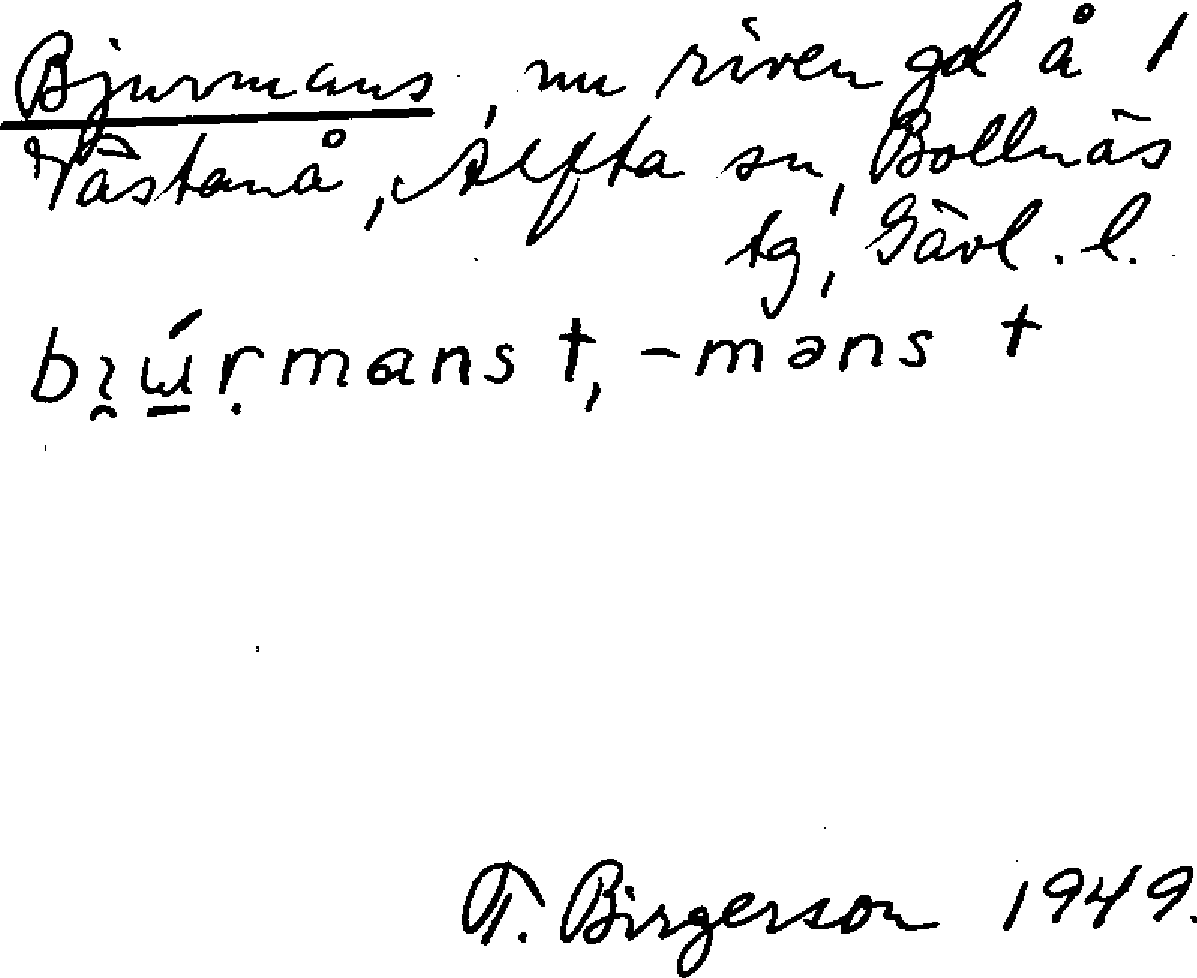 Bjurmans, nu riven gd å 1
Västanå, Alfta sn, Bollnäs
tg, Gävl. l.
bı̯ɯ̱́ṛmans †, -məns †
T. Birgerson 1949.